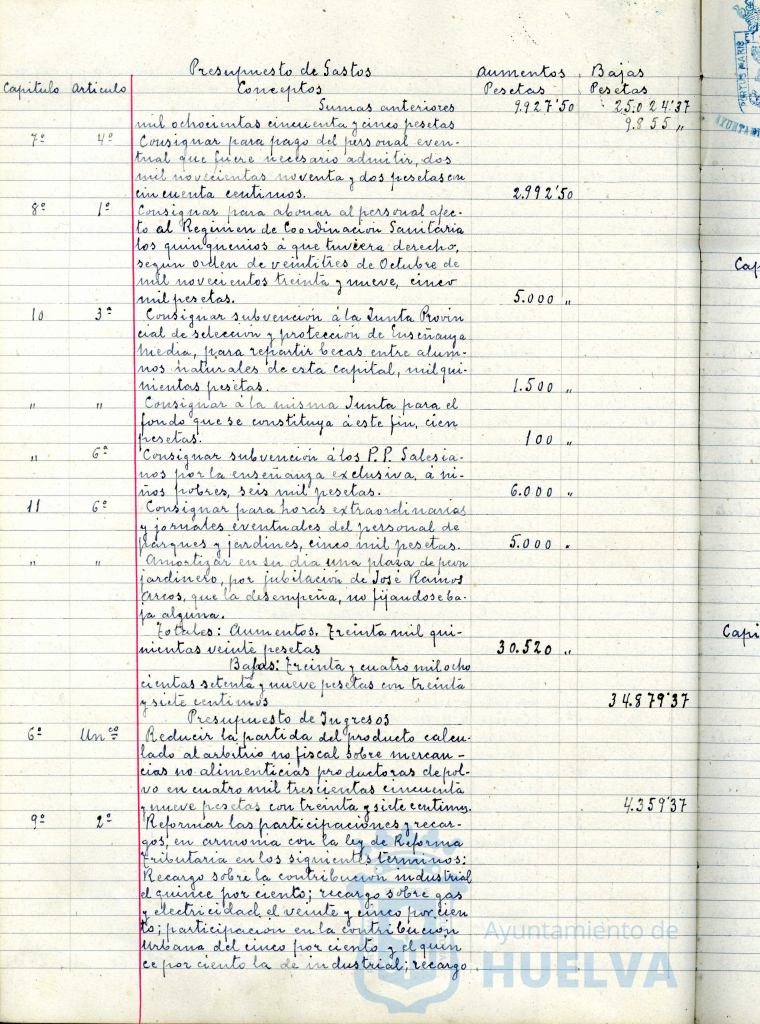 Presupuesto de Gastos Aumentos Bajas
Capitulo Articulo Conceptos Pesetas Pesetas
Sumas anteriores 9.927'50 25.024'37
mil ochocientas cincuenta y cinco pesetas 9.855 "
7º 4º Consignar para pago del personal even-
tual que fuere necesario admitir, dos
mil novecientas noventa y dos pesetas con
cincuenta centimos. 2.992'50
8º 1º Consignar para abonar al personal afec-
to al Regimen de Coordinación Sanitaria
los quinquenios á que tuviera derecho,
según orden de veintitres de Octubre de
mil novecientos treinta y nueve, cinco
mil pesetas. 5.000 "
10 3º Consignar subvención á la Junta Provin
cial de selección y protección de Enseñanza
Media, para repartir becas entre alum-
nos naturales de esta capital, mil qui-
nientas pesetas. 1.500 "
" " Consignar á la misma Junta para el
fondo que se constituya á este fin, cien
pesetas. 100 "
" 6º Consignar subvención á los P.P. Salesia-
nos por la enseñanza exclusiva, á ni-
ños pobres, seis mil pesetas. 6.000 "
11 6º Consignar para horas extraordinarias
y jornales eventuales del personal de
parques y jardines, cinco mil pesetas. 5.000 "
" " Amortizar en su dia una plaza de peon
jardinero, por jubilación de José Ramos
Arcos, que la desempeña, no fijandose ba-
ja alguna.
Totales: Aumentos. Treinta mil qui-
nientas veinte pesetas 30.520 "
Bajas: Treinta y cuatro mil ocho
cientas setenta y nueve pesetas con treinta
y siete centimos 34.879'37
Presupuesto de Ingresos
6º Unco Reducir la partida del producto calcu-
lado al arbitrio no fiscal sobre mercan-
cias no alimenticias productoras de pol-
vo en cuatro mil trescientas cincuenta
y nueve pesetas con treinta y siete centimos. 4.359'37
9º 2º Reformar las participaciones y recar-
gos, en armonia con la ley de Reforma
Tributaria en los siguientes terminos:
Recargo sobre la contribucion industrial
el quince por ciento; recargo sobre gas
y electricidad, el veinte y cinco por cien
to; participacion en la contribución
Urbana del cinco por ciento y el quin
ce por ciento la de industrial; recargo
Cap
Capi
Ayuntamiento de
HUELVA